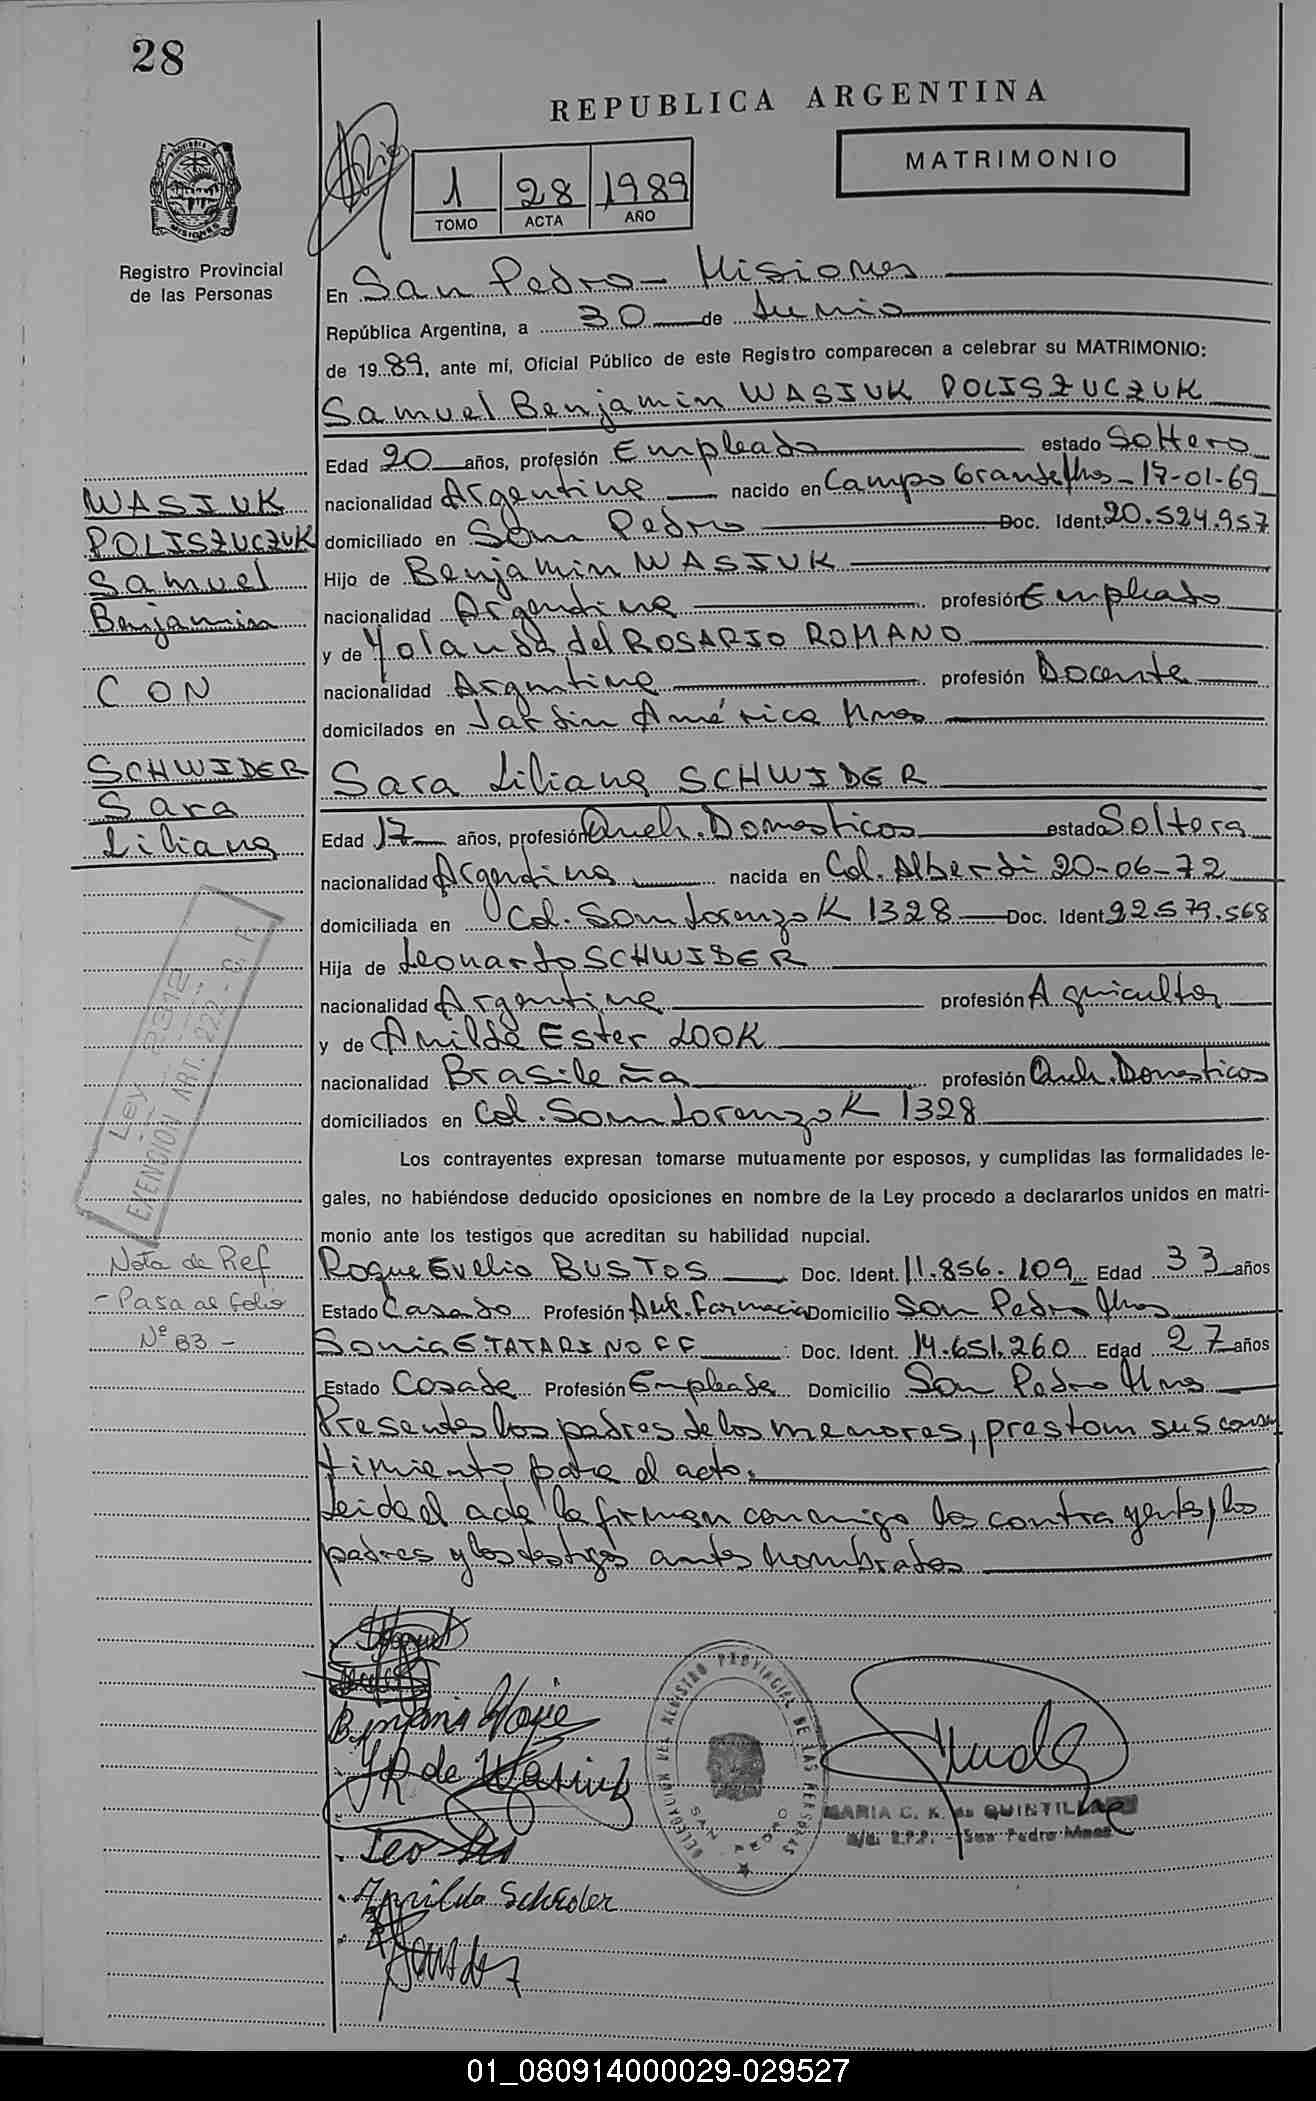 28
REPUBLICA ARGENTINA
MATRIMONIO
1 28 1989
TOMO ACTA AÑO
MISIONES
Registro Provincial
de las Personas
En San Pedro - Misiones
República Argentina, a 30 de Junio
de 1989, ante mí, Oficial Público de este Registro comparecen a celebrar su MATRIMONIO:
Samuel Benjamin WASIUK POLISZUCZUK
Edad 20 años, profesión Empleado estado Soltero
nacionalidad Argentina nacido en Campo Grande Mnes - 17-01-69
domiciliado en San Pedro Doc. Ident. 20.524.957
Hijo de Benjamin WASIUK
nacionalidad Argentina profesión Empleado
y de Yolanda del ROSARIO ROMANO
nacionalidad Argentina profesión Docente
domicilados en Jardin América Mnes
WASIUK
POLISZUCZUK
Samuel
Benjamin
CON
SCHWIDER
Sara
Liliana
Sara Liliana SCHWIDER
Edad 17 años, profesión Queh. Domesticos estado Soltera
nacionalidad Argentina nacida en Col. Alberdi 20-06-72
domiciliada en Col. San Lorenzo K 1328 Doc. Ident. 22.579.568
Hija de Leonardo SCHWIDER
nacionalidad Argentina profesión Agricultor
y de Anilda Ester LOOK
nacionalidad Brasileña profesión Queh. Domesticos
domiciliados en Col. San Lorenzo K 1328
Ley 2312
EXENCIÓN ART. 222 - C. F.
Los contrayentes expresan tomarse mutuamente por esposos, y cumplidas las formalidades le-
gales, no habiéndose deducido oposiciones en nombre de la Ley procedo a declararlos unidos en matri-
monio ante los testigos que acreditan su habilidad nupcial.
Roque Evelio BUSTOS Doc. Ident. 11.856.109 Edad 33 años
Estado Casado Profesión Aux. Farmacia Domicilio San Pedro Mnes
Sonia E. TATARINOFF Doc. Ident. 14.651.260 Edad 27 años
Estado Casada Profesión Empleada Domicilio San Pedro Mnes
Nota de Ref
- Pasa al folio
Nº 83 -
Presentes los padres de los menores, prestan sus consen
timiento para el acto.
Leida el acta la firman conmigo los contrayentes, los
padres y los testigos antes nombrados
JR de Wasiuk
Anilda Schwider
DELEGACION DEL REGISTRO PROVINCIAL DE LAS PERSONAS
SAN PEDRO
MARIA C. K. de QUINTILLA
San Pedro Mnes
01_080914000029-029527